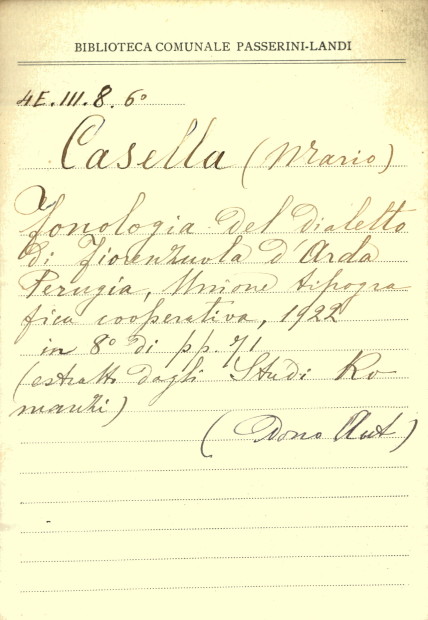 BIBLIOTECA COMUNALE PASSERINI-LANDI
4E.III.8.6°
Casella (Mario)
Fonologia del dialetto
di Fiorenzuola d'Arda
Perugia, Unione tipogra
fica cooperativa, 1922
in 8° di pp. 71
(estratto dagli Studi Ro
manzi)
(Dono Aut)